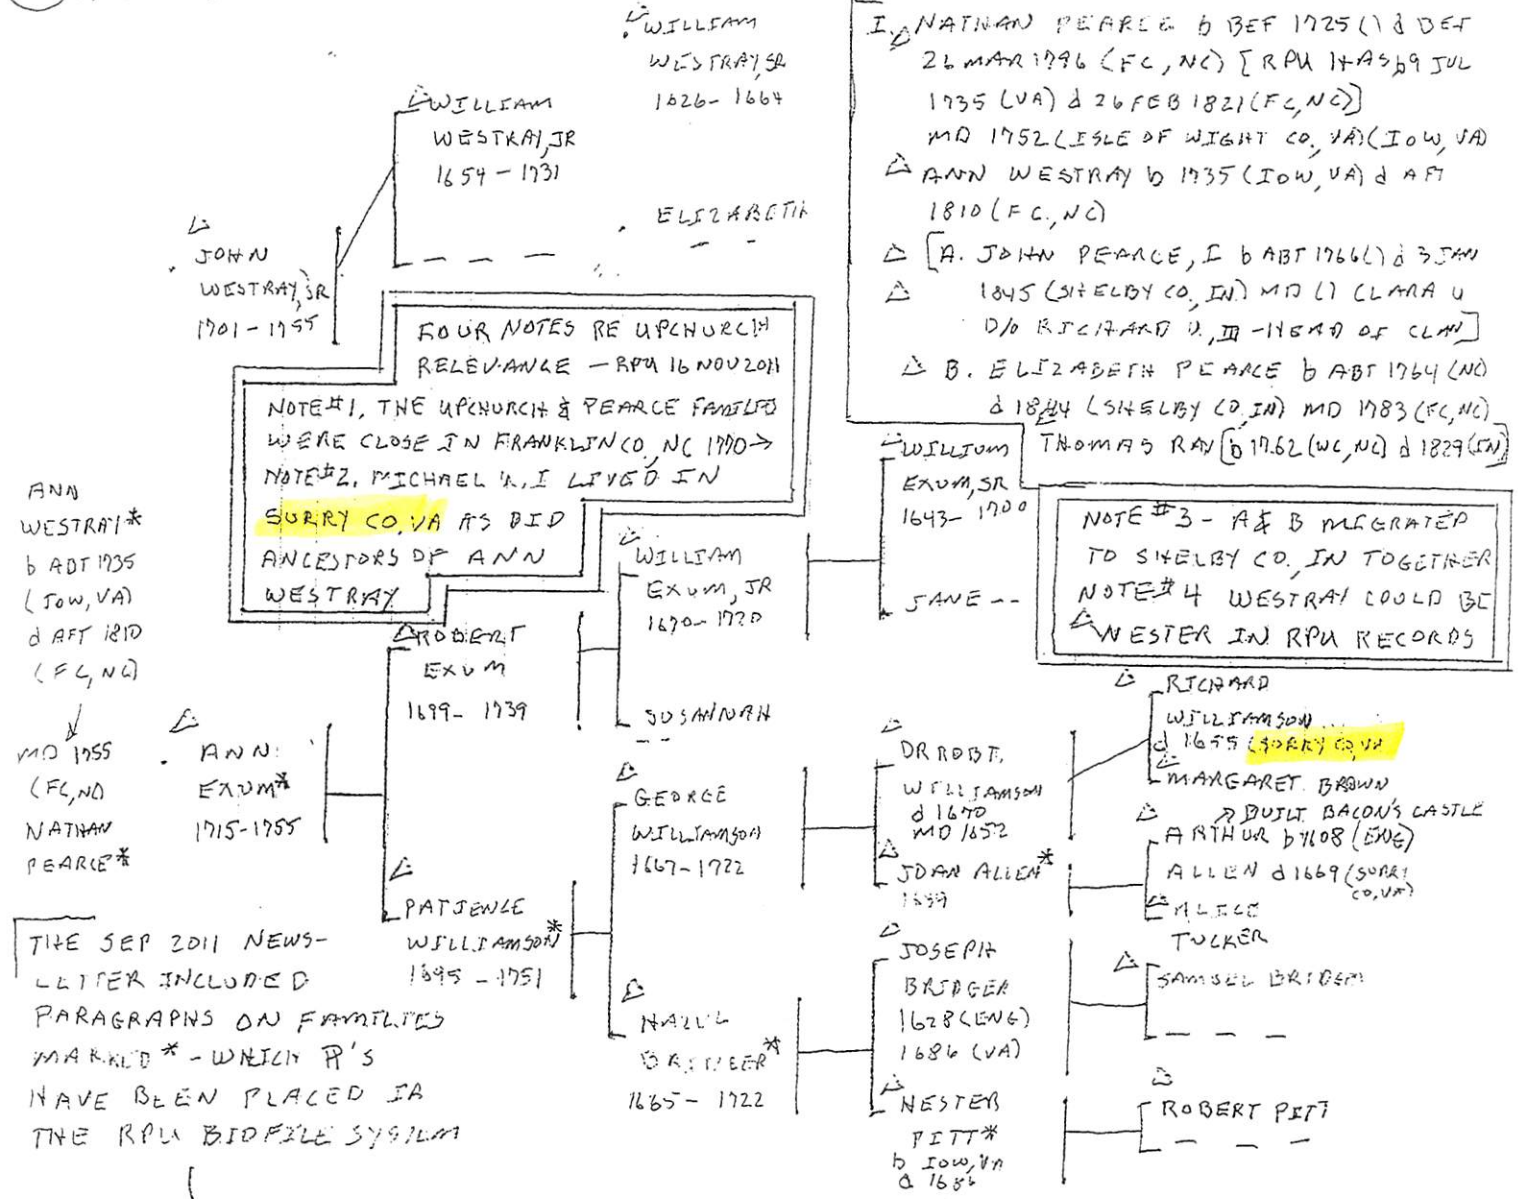 WILLIAM
WESTRAY, SR
1626 - 1664
WILLIAM
WESTRAY, JR
1654 - 1731
ELIZABETH
JOHN
WESTRAY, SR
1701 - 1755
I. NATHAN PEARCE b BEF 1725 ( ) d BEF
26 MAR 1796 (FC, NC) [RPU HAS b 9 JUL
1735 (VA) d 26 FEB 1821 (FC, NC)]
MD 1752 (ISLE OF WIGHT CO., VA) (IOW, VA)
ANN WESTRAY b 1735 (IOW, VA) d AFT
1810 (FC., NC)
[A. JOHN PEARCE, I b ABT 1766 ( ) d 3 JAN
1845 (SHELBY CO., IN) MD ( ) CLARA U
D/O RICHARD U., III - HEAD OF CLAN]
B. ELIZABETH PEARCE b ABT 1764 (NC)
d 1844 (SHELBY CO, IN) MD 1783 (FC, NC)
THOMAS RAY [b 1762 (WC, NC) d 1829 (IN)]
FOUR NOTES RE UPCHURCH
RELEVANCE - RPU 16 NOV 2011
NOTE #1, THE UPCHURCH & PEARCE
WERE CLOSE IN FRANKLIN CO., NC 1770 →
NOTE #2, MICHAEL U., I LIVED IN
SURRY CO, VA AS DID
ANCESTORS OF ANN
WESTRAY
NOTE #3 - A & B MIGRATED
TO SHELBY CO., IN TOGETHER
NOTE #4 WESTRAY COULD BE
WESTER IN RPU RECORDS
ANN
WESTRAY*
b ABT 1735
(IOW, VA)
d AFT 1810
(FC, NC)
MD 1755
(FC, NC)
NATHAN
PEARCE*
ANN
EXUM*
1715-1755
ROBERT
EXUM
1699 - 1739
PATIENCE
WILLIAMSON*
1695 - 1751
WILLIAM
EXUM, JR
1670 - 1720
SUSANNAH
- -
WILLIUM
EXUM, SR
1643 - 1700
JANE - -
GEORGE
WILLIAMSON
1667 - 1722
BRIDGER*
1665 - 1722
DR ROBT.
WILLIAMSON
d 1670
MD 1652
JOAN ALLEN*
RICHARD
WILLIAMSON
d 1655 (SURRY CO, VA
MARGARET BROWN
↗ BUILT BACON'S CASTLE
ARTHUR b 1608 (ENG)
ALLEN d 1669 (SURRY
CO, VA)
ALICE
TUCKER
JOSEPH
BRIDGER
1628 (ENG)
1686 (VA)
HESTER
PITT*
b IOW, VA
d 1686
SAMUEL BRIDGER
ROBERT PITT
THE SEP 2011 NEWS-
LETTER INCLUDED
PARAGRAPHS ON FAMILIES
MARKED * - WHICH P'S
HAVE BEEN PLACED IN
THE RPU BIOFILE SYSTEM